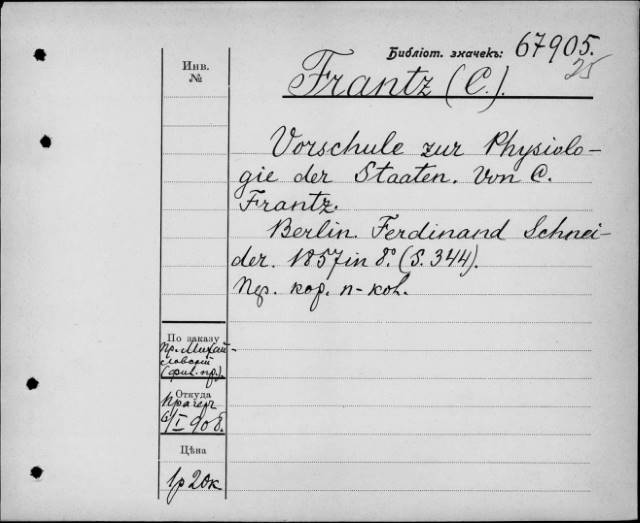 Библіот. значекъ: 67905.
25
Инв.
№
Frantz (C.).
Vorschule zur Physiolo-
gie der Staaten. Von C.
Frantz.
Berlin. Ferdinand Schnei-
der. 1857 in 8° (S. 344).
Пер. кор. п-кож.
По заказу
Пр. Михай-
ловскій
(фил. пр.).
Откуда
I 908.
Цѣна
1р 20к